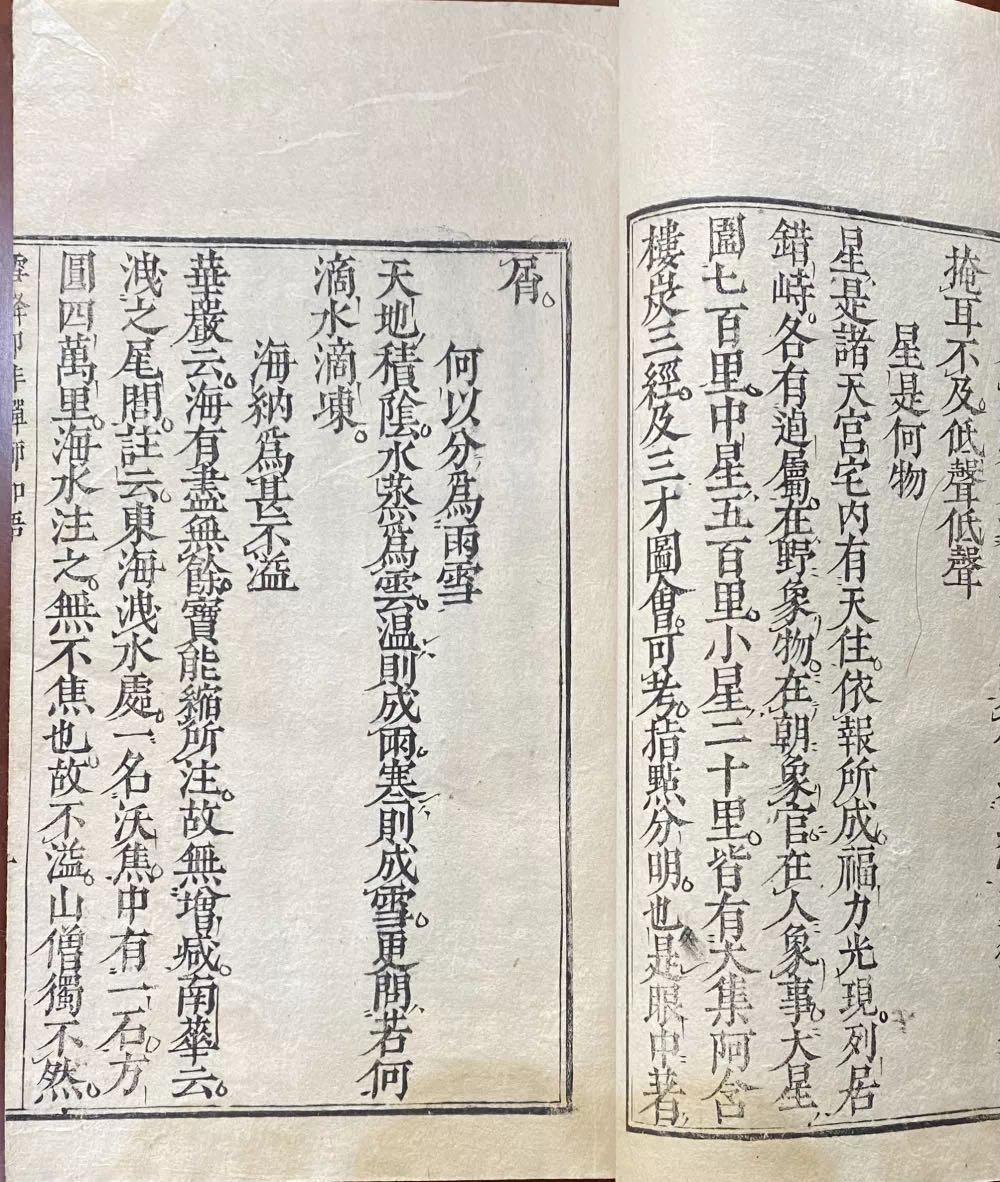 掩耳不及。低聲低聲
星是何物
星是諸天宮宅內有天住。依報所成。福力光現。列居
錯峙。各有逌屬。在野象物。在朝象官。在人象事。大星
圍七百里。中星五百里。小星二十里。皆有大集阿含
樓炭三經。及三才圖會。可考。指點分明。也是眼中著
屑。
何以分爲雨雪
天地積陰。水蒸爲雲。温則成雨。寒則成雪。更問若何
滴水滴凍。
海納爲甚不溢
華嚴云。海有盡無餘。寶能縮所注。故無增减。南華云。
洩之尾閭。註云。東海洩水處。一名沃焦。中有一石。方
圓四萬里。海水注之。無不焦也。故不溢。山僧獨不然。
禪師